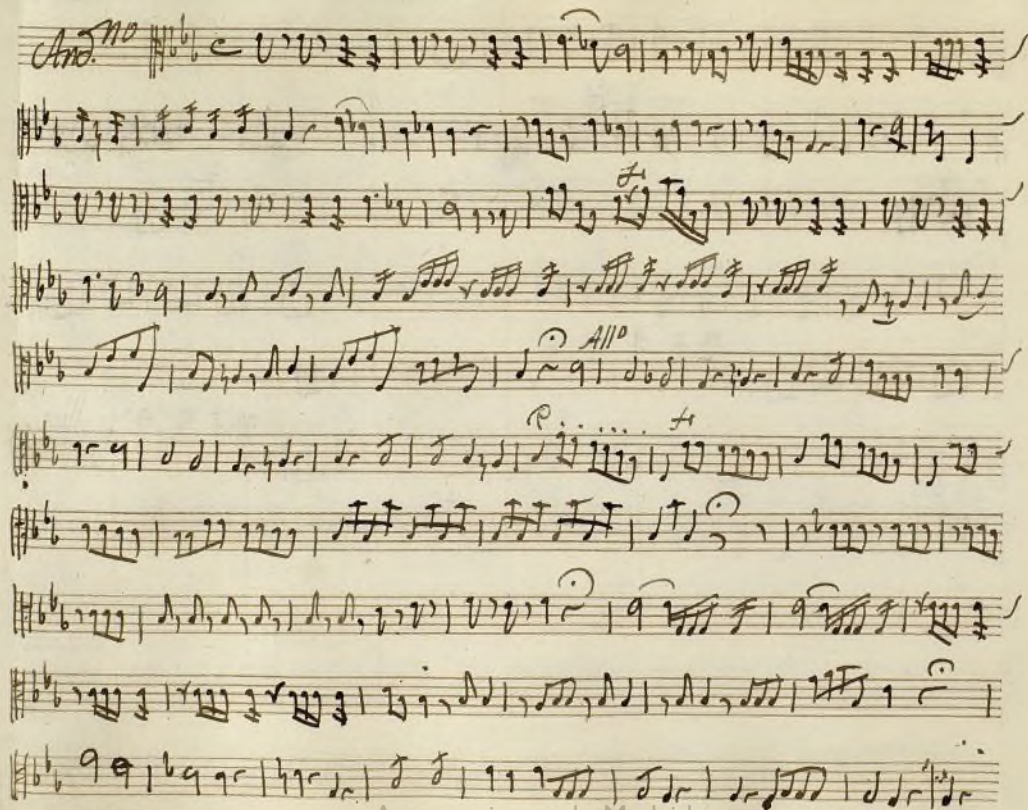 And.no
All.o
P.